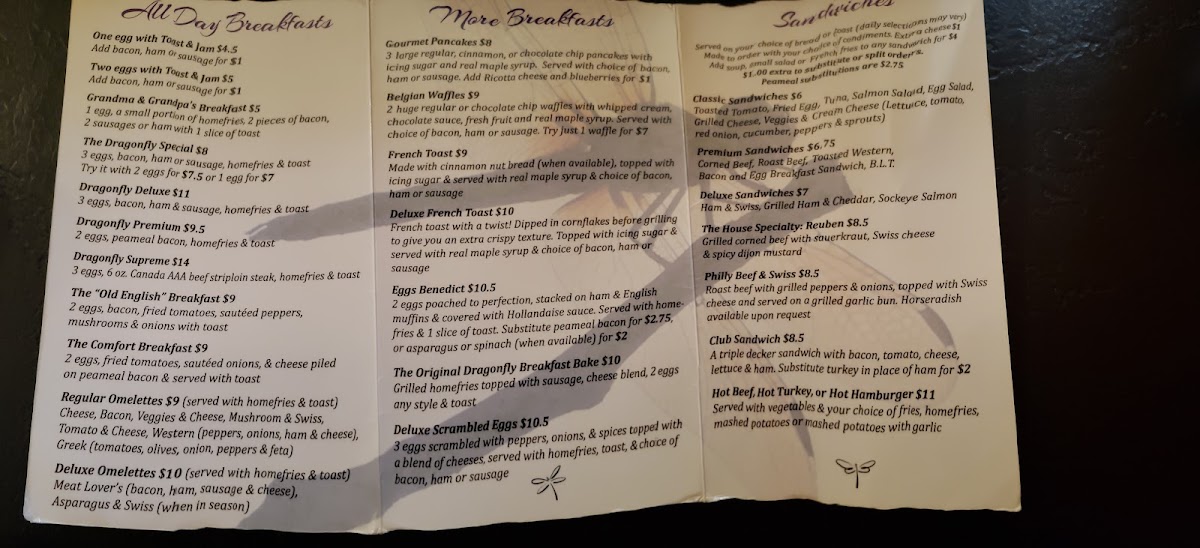 All Day Breakfasts
One egg with Toast & Jam $4.5
Add bacon, ham or sausage for $1
Two eggs with Toast & Jam $5
Add bacon, ham or sausage for $1
Grandma & Grandpa's Breakfast $5
1 egg, a small portion of homefries, 2 pieces of bacon,
2 sausages or ham with 1 slice of toast
The Dragonfly Special $8
3 eggs, bacon, ham or sausage, homefries & toast
Try it with 2 eggs for $7.5 or 1 egg for $7
Dragonfly Deluxe $11
3 eggs, bacon, ham & sausage, homefries & toast
Dragonfly Premium $9.5
2 eggs, peameal bacon, homefries & toast
Dragonfly Supreme $14
3 eggs, 6 oz. Canada AAA beef striploin steak, homefries & toast
The "Old English" Breakfast $9
2 eggs, bacon, fried tomatoes, sautéed peppers,
mushrooms & onions with toast
The Comfort Breakfast $9
2 eggs, fried tomatoes, sautéed onions, & cheese piled
on peameal bacon & served with toast
Regular Omelettes $9 (served with homefries & toast)
Cheese, Bacon, Veggies & Cheese, Mushroom & Swiss,
Tomato & Cheese, Western (peppers, onions, ham & cheese),
Greek (tomatoes, olives, onion, peppers & feta)
Deluxe Omelettes $10 (served with homefries & toast)
Meat Lover's (bacon, ham, sausage & cheese),
Asparagus & Swiss (when in season)
More Breakfasts
Gourmet Pancakes $8
3 large regular, cinnamon, or chocolate chip pancakes with
icing sugar and real maple syrup. Served with choice of bacon,
ham or sausage. Add Ricotta cheese and blueberries for $1
Belgian Waffles $9
2 huge regular or chocolate chip waffles with whipped cream,
chocolate sauce, fresh fruit and real maple syrup. Served with
choice of bacon, ham or sausage. Try just 1 waffle for $7
French Toast $9
Made with cinnamon nut bread (when available), topped with
icing sugar & served with real maple syrup & choice of bacon,
ham or sausage
Deluxe French Toast $10
French toast with a twist! Dipped in cornflakes before grilling
to give you an extra crispy texture. Topped with icing sugar &
served with real maple syrup & choice of bacon, ham or
sausage
Eggs Benedict $10.5
2 eggs poached to perfection, stacked on ham & English
muffins & covered with Hollandaise sauce. Served with home-
fries & 1 slice of toast. Substitute peameal bacon for $2.75,
or asparagus or spinach (when available) for $2
The Original Dragonfly Breakfast Bake $10
Grilled homefries topped with sausage, cheese blend, 2 eggs
any style & toast
Deluxe Scrambled Eggs $10.5
3 eggs scrambled with peppers, onions, & spices topped with
a blend of cheeses, served with homefries, toast, & choice of
bacon, ham or sausage
Sandwiches
Served on your choice of bread or toast (daily selections may vary)
Made to order with your choice of condiments. Extra cheese $1
Add soup, small salad or French fries to any sandwich for $4
$1.00 extra to substitute or split orders.
Peameal substitutions are $2.75
Classic Sandwiches $6
Toasted Tomato, Fried Egg, Tuna, Salmon Salad, Egg Salad,
Grilled Cheese, Veggies & Cream Cheese (Lettuce, tomato,
red onion, cucumber, peppers & sprouts)
Premium Sandwiches $6.75
Corned Beef, Roast Beef, Toasted Western,
Bacon and Egg Breakfast Sandwich, B.L.T.
Deluxe Sandwiches $7
Ham & Swiss, Grilled Ham & Cheddar, Sockeye Salmon
The House Specialty: Reuben $8.5
Grilled corned beef with sauerkraut, Swiss cheese
& spicy dijon mustard
Philly Beef & Swiss $8.5
Roast beef with grilled peppers & onions, topped with Swiss
cheese and served on a grilled garlic bun. Horseradish
available upon request
Club Sandwich $8.5
A triple decker sandwich with bacon, tomato, cheese,
lettuce & ham. Substitute turkey in place of ham for $2
Hot Beef, Hot Turkey, or Hot Hamburger $11
Served with vegetables & your choice of fries, homefries,
mashed potatoes or mashed potatoes with garlic